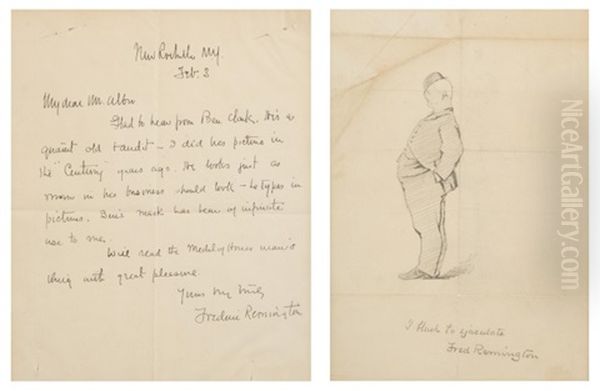 New Rochelle NY.
Feb. 3
My dear Mr.
Glad to hear from Ben Clark. He's a
quaint old bandit – I did his picture in
the "Century" years ago. He looks just as
man in his business should look – he types in
picture. Ben's mask has been of infinite
use to me.
Will read the Medal of Honor man's
thing with great pleasure.
Yours very truly
Frederic Remington
I to ejaculate
Fred Remington
NiceArtGallery.com